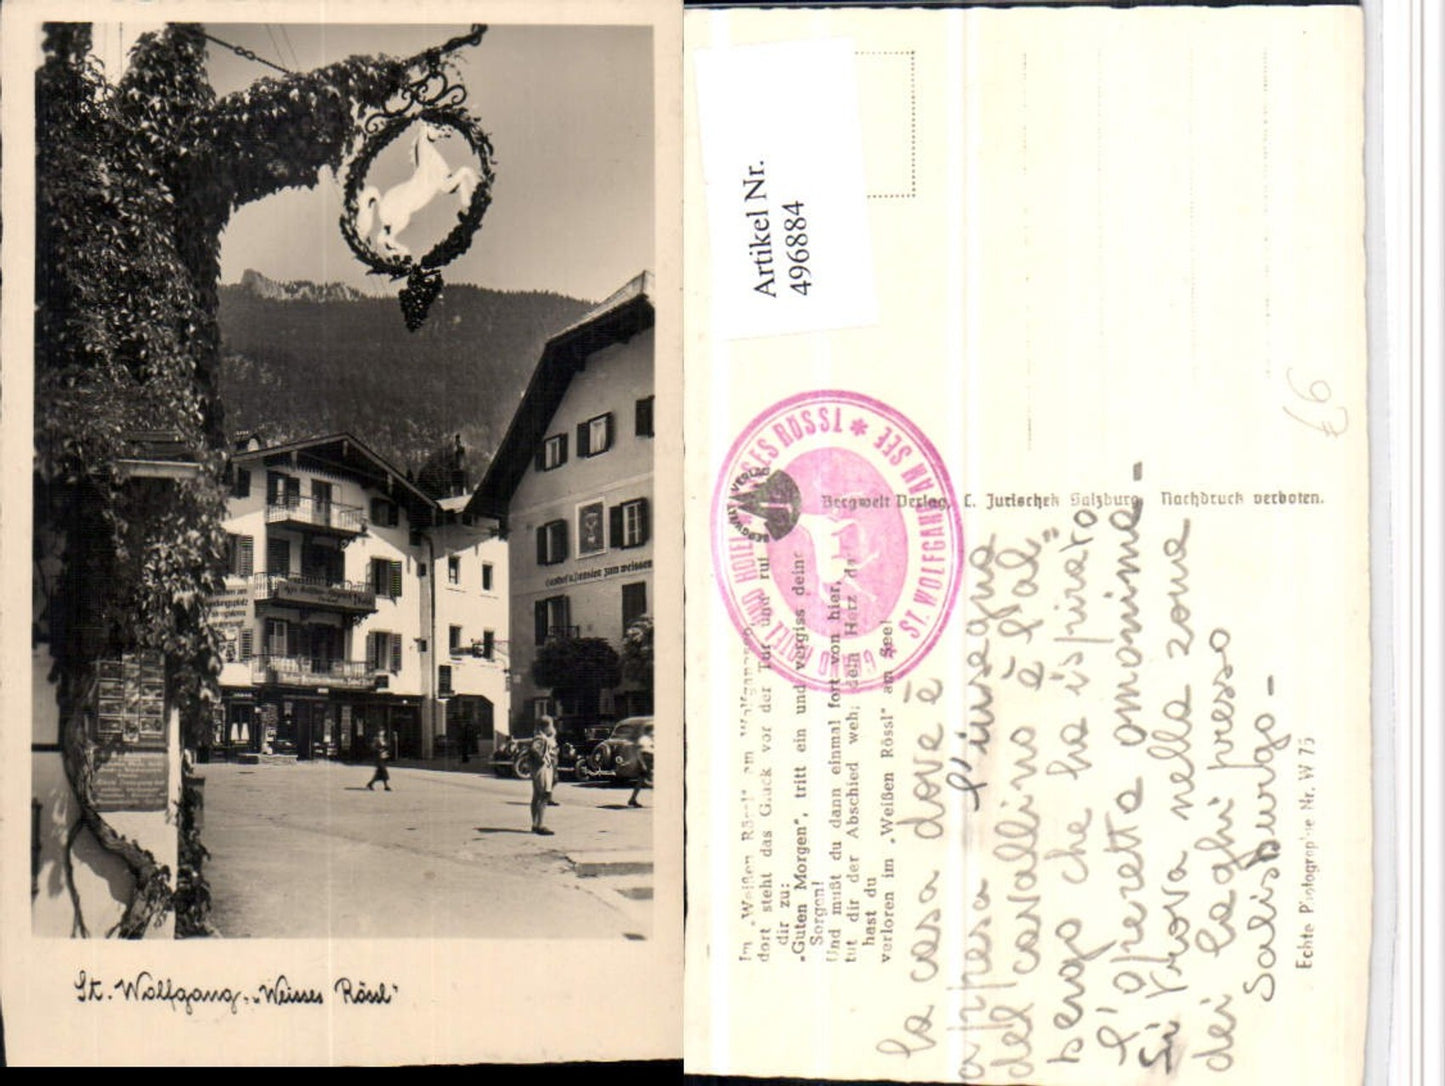 St. Wolfgang, „Weisses Rössl"
Gasthof u. Pension zum weissen
Artikel Nr.
496884
€6
GRAND HOTEL UND HOTEL WEISSES RÖSSL * ST. WOLFGANG AM SEE *
BERGWELT VERLAG
Bergwelt Verlag, C. Jurischek Salzburg Nachdruck verboten.
Im „Weißen Rössl" am Wolfgangsee,
dort steht das Glück vor der Tür und ruf
dir zu:
„Guten Morgen", tritt ein und vergiss deine
Sorgen!
Und mußt du dann einmal fort von hier,
tut dir der Abschied weh; dein Herz da
hast du
verloren im „Weißen Rössl" am See!
la casa dove è
appesa l'insegna
del cavallino è l'al-
bergo che ha ispirato
l'operetta omonima-
Si trova nella zona
dei laghi presso
Salisburgo-
Echte Photographie Nr. W 75